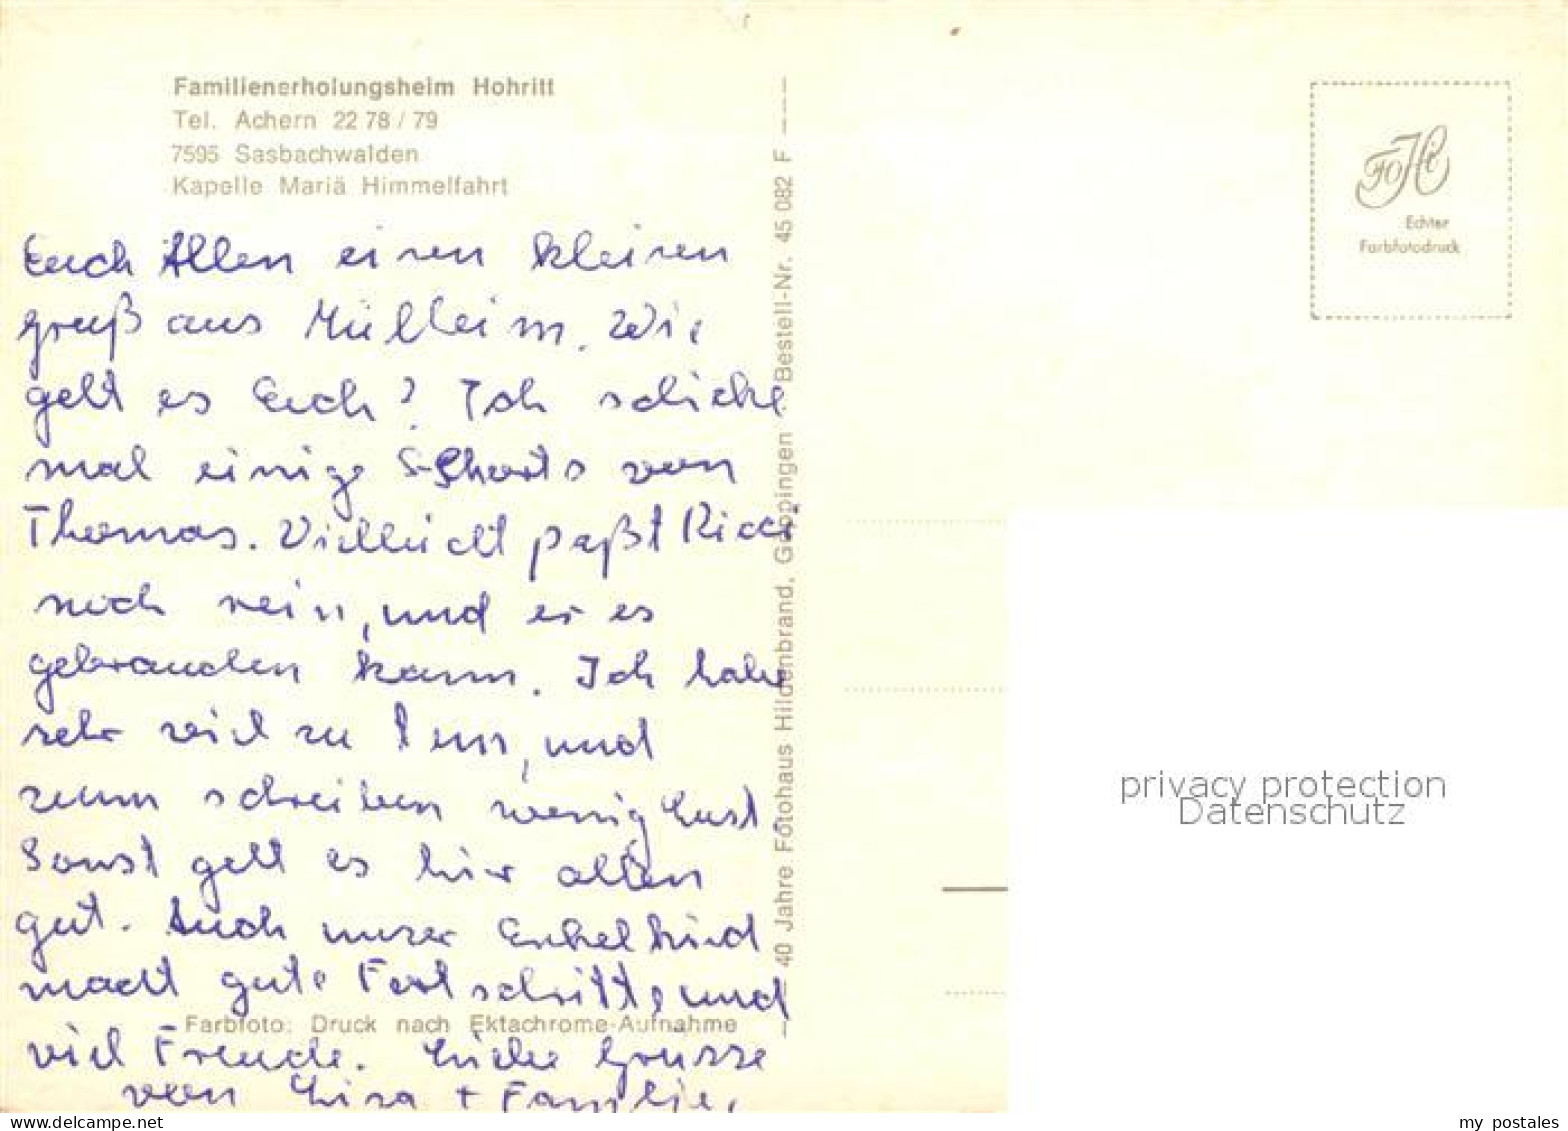 Familienerholungsheim Hohritt
Tel. Achern 22 78 / 79
7595 Sasbachwalden
Kapelle Mariä Himmelfahrt
Euch Allen einen kleinen
gruß aus Müllheim. Wie
geht es Euch? Ich schicke
mal einige Shorts von
Thomas. Vielleicht paßt Ricci
noch rein, und er es
gebrauchen kann. Ich habe
sehr viel zu tun, und
zum schreiben wenig Lust.
Sonst geht es hier allen
gut. Auch unser Enkelkind
macht gute Fortschritte, und
viel Freude. Liebe Grüsse
von Lisa + Familie.
Farbfoto: Druck nach Ektachrome-Aufnahme
40 Jahre Fotohaus Hildenbrand, Göppingen · Bestell-Nr. 45 082 F
FOHi
Echter
Farbfotodruck
privacy protection
Datenschutz
my postales